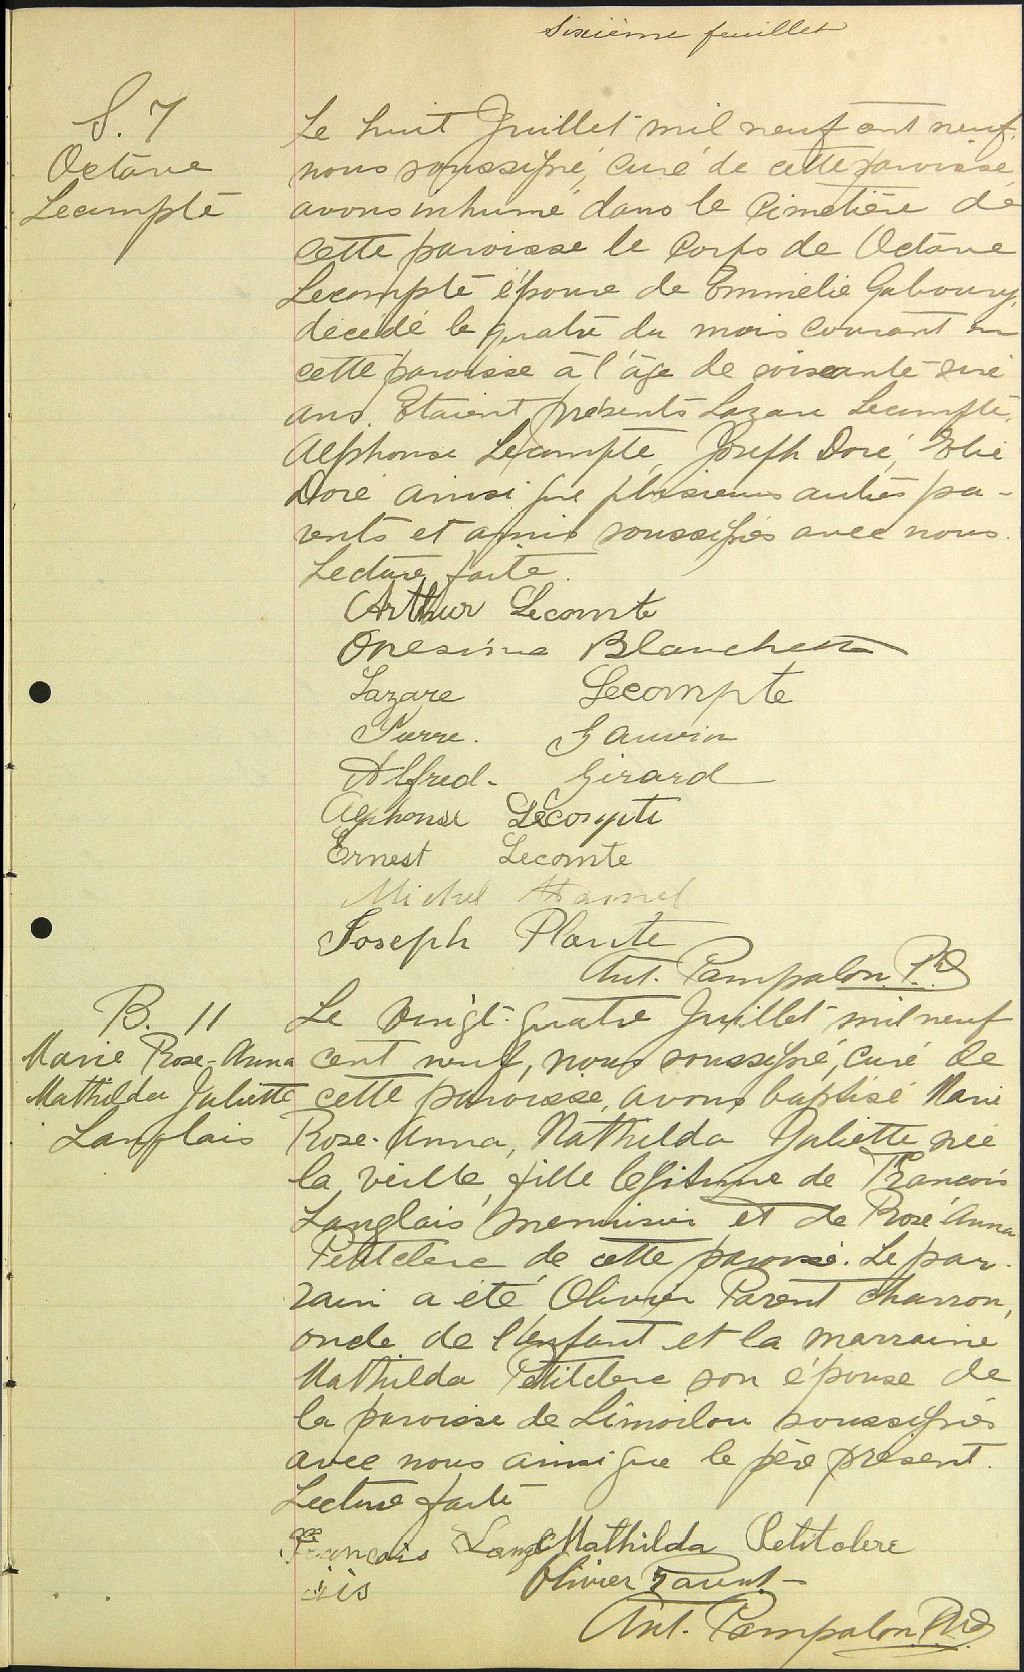 Sixième feuillet
S. 7
Octave
Lecompte
Le huit Juillet mil neuf cent neuf,
nous soussigné, curé de cette paroisse,
avons inhumé dans le Cimetière de
cette paroisse le corps de Octave
Lecompte époux de Emmelie Gaboury,
décédé le quatre du mois courant en
cette paroisse à l'âge de soixante
ans. Etaient présents Lazare Lecompte,
Alphonse Lecompte, Joseph Doré, Elie
Doré ainsi que plusieurs autres pa-
rents et amis soussignés avec nous.
Lecture faite.
Arthur Lecomte
Onesime Blanchette
Lazare Lecompte
Pierre Gauvin
Alfred Girard
Alphonse Lecompte
Ernest Lecomte
Michel Hamel
Joseph Plante
Ant. Pampalon Ptre
B. 11
Marie Rose-Anna
Mathilda Juliette
Langlais
Le vingt-quatre Juillet mil neuf
cent neuf, nous soussigné, curé de
cette paroisse, avons baptisé Marie
Rose-Anna, Mathilda Juliette née
la veille, fille légitime de François
Langlais menuisier et de Rose-Anna
Petitclerc de cette paroisse. Le par-
rain a été Olivier Parent charron,
oncle de l'enfant et la marraine
Mathilda Petitclerc son épouse de
la paroisse de Limoilou soussignés
avec nous ainsi que le père présent.
Lecture faite
François Langl Mathilda Petitclerc
ais Olivier Parent
Ant. Pampalon Ptre